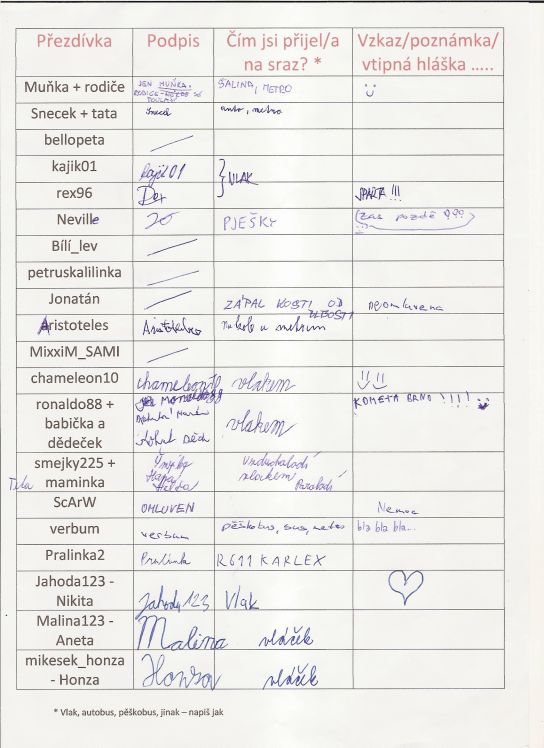 Přezdívka Podpis Čím jsi přijel/a na sraz? * Vzkaz/poznámka/ vtipná hláška .....
Muňka + rodiče JEN MUŇKA, ŠALINA, METRO
Snecek + tata Snecek auto, metro
bellopeta
kajik01 kajik01 VLAK
rex96 SPARTA !!!
Neville PJEŠKY (zas pozdě !!!
Bílí_lev
petruskalilinka
Jonatán ZÁPAL KOSTI OD neomluvena
Aristoteles Aristoteles
MixxiM_SAMI
chameleon10 chameleon10 vlakem
ronaldo88 + babička a dědeček vlakem KOMETA BRNO !!!!
smejky225 + maminka
ScArW OMLUVEN Nemoc
verbum verbum pěškobus, bus, metro bla bla bla...
Pralinka2 Pralinka R611 KARLEX
Jahoda123 - Nikita Jahoda123 Vlak
Malina123 - Aneta Malina vláček
mikesek_honza - Honza Honza vláček
* Vlak, autobus, pěškobus, jinak – napiš jak